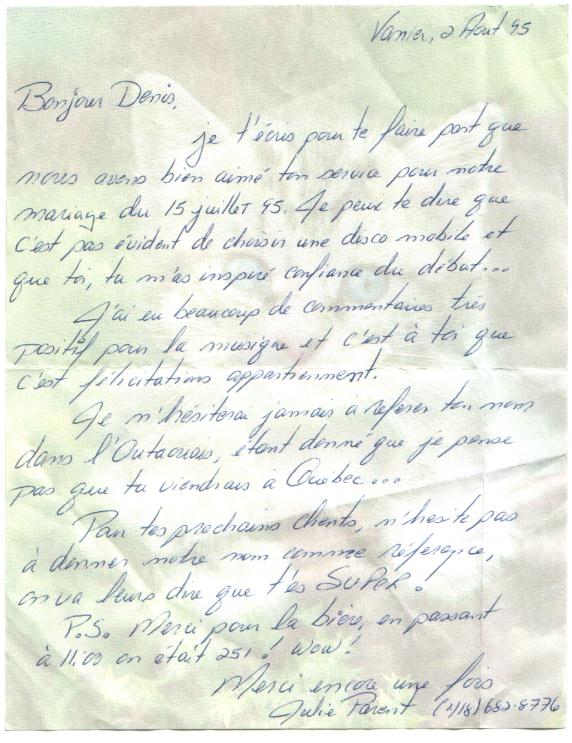 Vanier, 2 Aout 95
Bonjour Denis,
je t'écris pour te faire part que
nous avons bien aimé ton service pour notre
mariage du 15 juillet 95. Je peux te dire que
c'est pas évident de choisir une disco mobile et
que toi, tu m'as inspiré confiance du début...
J'ai eu beaucoup de commentaires très
positifs pour la musique et c'est à toi que
c'est félicitations appartiennent.
Je n'hésiterai jamais a referer ton nom
dans l'Outaouais, étant donné que je pense
pas que tu viendrais à Québec...
Pour tes prochains clients, n'hésite pas
à donner notre nom comme référence,
on va leurs dire que t'es SUPER.
P.S. Merci pour la bière, en passant
à 11:00 on était 251! Wow!
Merci encore une fois
Julie Parent (418) 682-8776